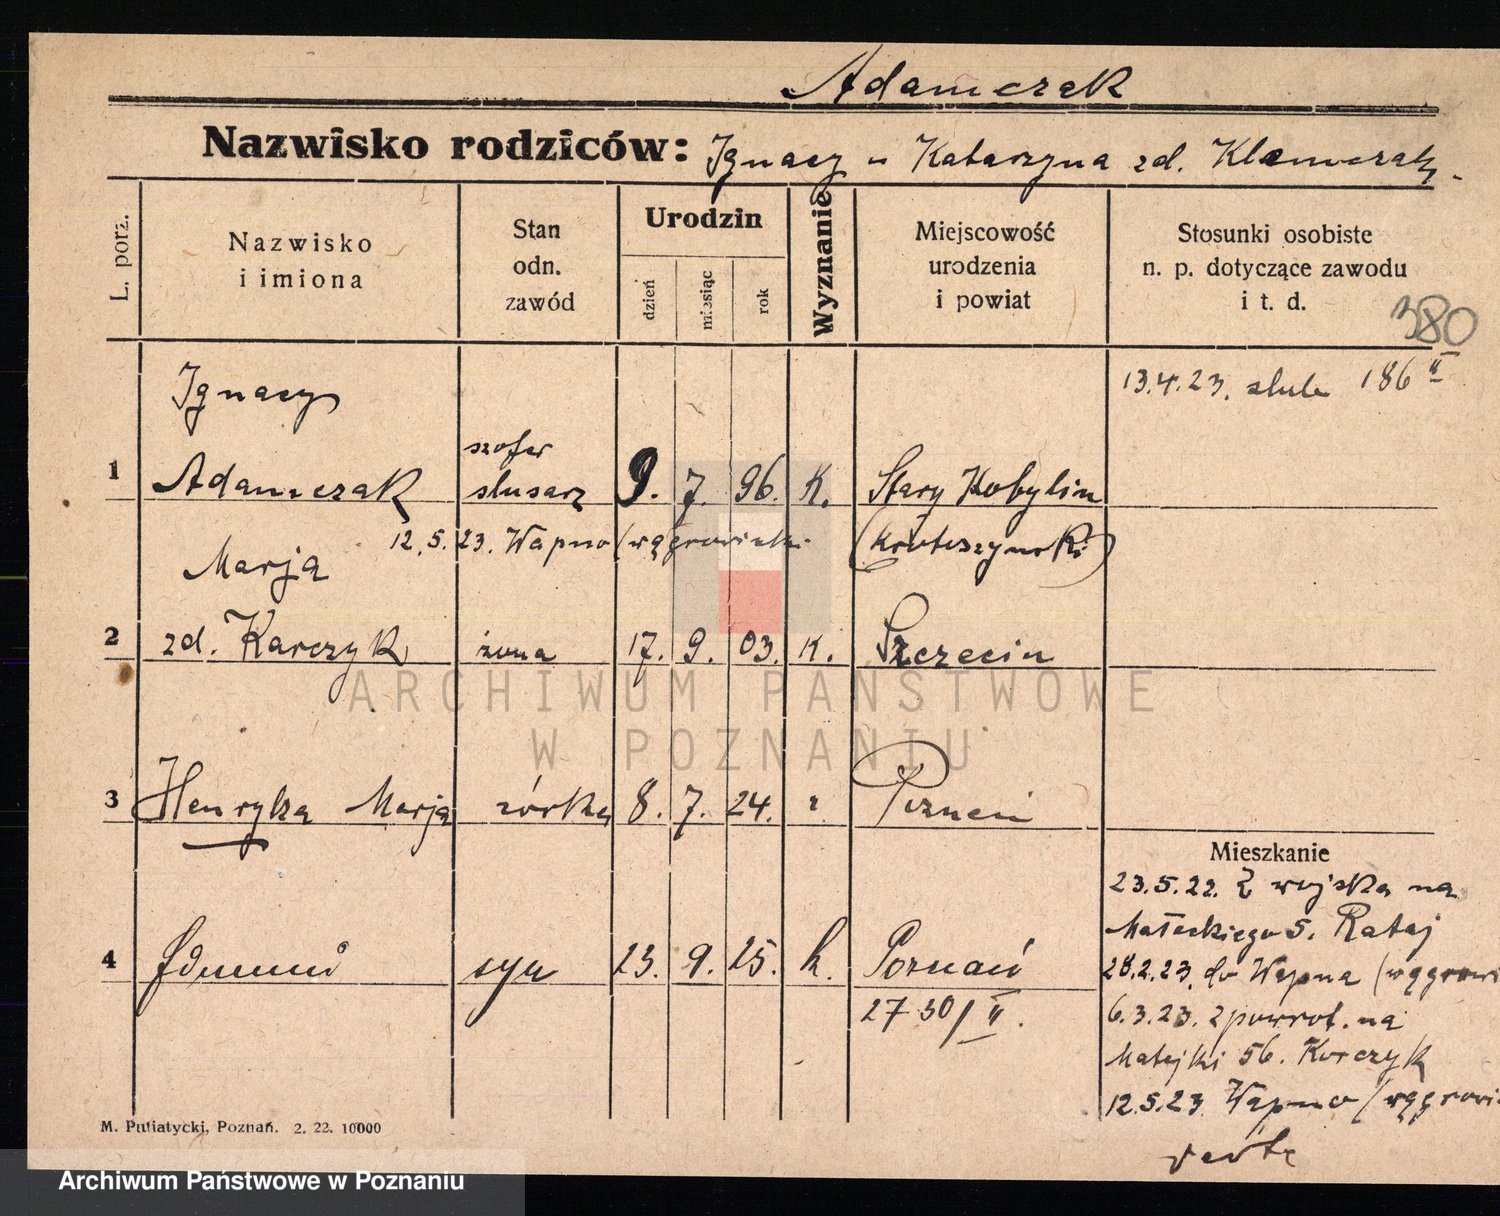 Adamczak
Nazwisko rodziców: Ignacy u Katarzyna zd. Klemczak
L. porz.
Nazwisko i imiona
Stan odn. zawód
Urodzin
dzień
miesiąc
rok
Wyznanie
Miejscowość urodzenia i powiat
Stosunki osobiste n. p. dotyczące zawodu i t. d.
380
13.4.23. slub 186 II
Ignacy
szofer
1 Adamczak slusarz 9. 7. 96. K. Stary Kobylin
12.5.23. Wapno (wągrowiecki
(Krotoszyński)
Marja
2 zd. Karczyk żona 17. 9. 03. K. Szczecin
3 Henryka Marja córka 8. 7. 24. Poznań
Mieszkanie
23.5.22. Z wojska na
Małeckiego 5. Rataj
4 Edmund syn 23. 9. 25. k. Poznań
28.2.23. do Wapna (wągrowi
27 30/II.
6.3.23. z powrot. na
Matejki 56. Korczyk
12.5.23. Wapno (wągrowi
verte
M. Putiatycki, Poznań. 2. 22. 10000
ARCHIWUM PAŃSTWOWE
W POZNANIU
Archiwum Państwowe w Poznaniu